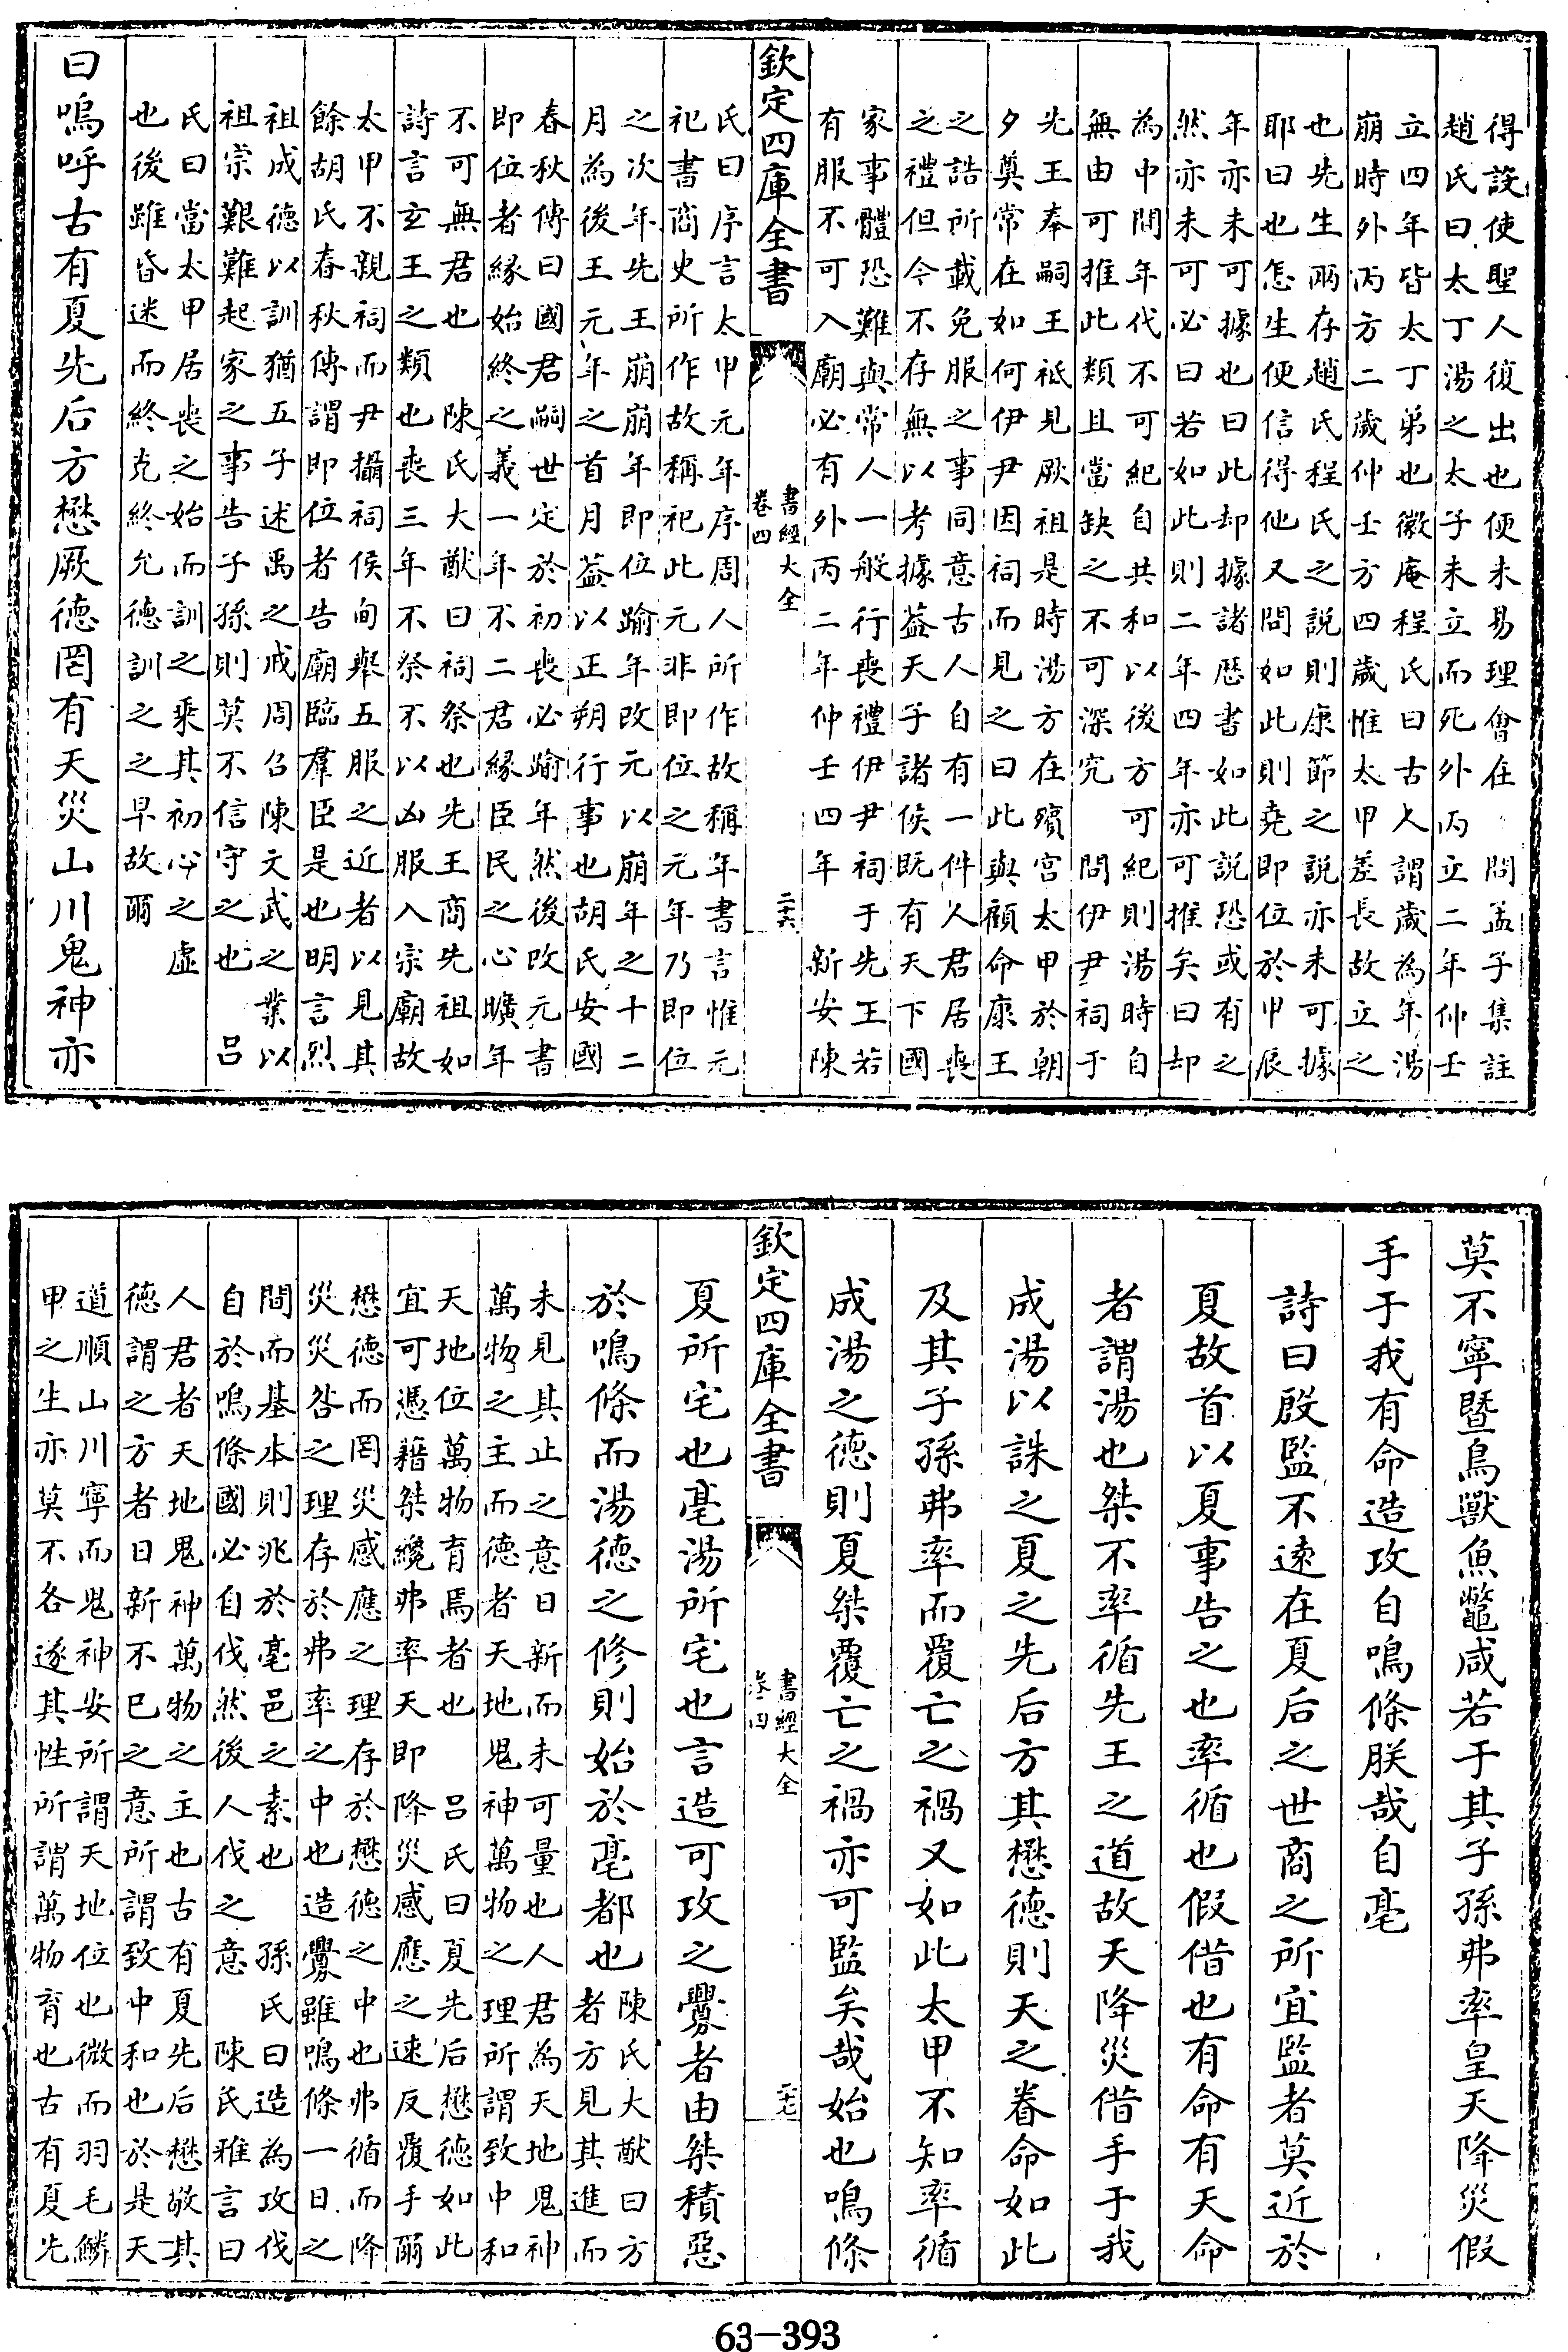 得設使聖人復出也便未易理會在　問孟子集註
趙氏曰太丁湯之太子未立而死外丙立二年仲壬
立四年皆太丁弟也徽庵程氏曰古人謂歲為年湯
崩時外丙方二歲仲壬方四歲惟太甲差長故立之
也先生兩存趙氏程氏之說則康節之說亦未可據
耶曰也怎生便信得他又問如此則堯即位於甲辰
年亦未可據也曰此却據諸歷書如此說恐或有之
然亦未可必曰若如此則二年四年亦可推矣曰却
為中間年代不可紀自共和以後方可紀則湯時自
無由可推此類且當缺之不可深究　問伊尹祠于
先王奉嗣王祗見厥祖是時湯方在殯宮太甲於朝
夕奠常在如何伊尹因祠而見之曰此與顧命康王
之誥所載冕服之事同意古人自有一件人君居喪
之禮但今不存無以考據蓋天子諸侯既有天下國
家事體恐難與常人一般行喪禮伊尹祠于先王若
有服不可入廟必有外丙二年仲壬四年　新安陳
欽定四庫全書
書經大全
卷四
二十六
氏曰序言太甲元年序周人所作故稱年書言惟元
祀書商史所作故稱祀此元祀非即位之元年乃即位
之次年先王崩崩年即位踰年改元以崩年之十二
月為後王元年之首月蓋以正朔行事也胡氏安國
春秋傳曰國君嗣世定於初喪必踰年然後改元書
即位者緣始終之義一年不二君緣臣民之心曠年
不可無君也　陳氏大猷曰祠祭也先王商先祖如
詩言玄王之類也喪三年不祭不以凶服入宗廟故
太甲不親祠而尹攝祠侯甸羣五服之近者以見其
餘胡氏春秋傳謂即位者告廟臨羣臣是也明言烈
祖成德以訓猶五子述禹之戒周召陳文武之業以
祖宗艱難起家之事告子孫則莫不信守之也　呂
氏曰當太甲居喪之始而訓之乘其初心之虛
也後雖昏迷而終克終允德訓之之早故爾
曰嗚呼古有夏先后方懋厥德罔有天災山川鬼神亦
莫不寧暨鳥獸魚鼈咸若于其子孫弗率皇天降災假
手于我有命造攻自鳴條朕哉自亳
詩曰殷監不遠在夏后之世商之所宜監者莫近於
夏故首以夏事告之也率循也假借也有命有天命
者謂湯也桀不率循先王之道故天降災借手于我
成湯以誅之夏之先后方其懋德則天之眷命如此
及其子孫弗率而覆亡之禍又如此太甲不知率循
成湯之德則夏桀覆亡之禍亦可監矣哉始也鳴條
欽定四庫全書
書經大全
卷四
二十七
夏所宅也亳湯所宅也言造可攻之釁者由桀積惡
於鳴條而湯德之修則始於亳都也陳氏大猷曰方
者方見其進而
未見其止之意日新而未可量也人君為天地鬼神
萬物之主而德者天地鬼神萬物之理所謂致中和
天地位萬物育焉者也　呂氏曰夏先后懋德如此
宜可憑藉桀纔弗率天即降災感應之速反覆手爾
懋德而罔災感應之理存於懋德之中也弗循而降
災災咎之理存於弗率之中也造釁雖鳴條一日之
間而基本則兆於亳邑之素也　孫氏曰造為攻伐
自於鳴條國必自伐然後人伐之意　陳氏雅言曰
人君者天地鬼神萬物之主也古有夏先后懋敬其
德謂之方者日新不已之意所謂致中和也於是天
道順山川寧而鬼神安所謂天地位也微而羽毛鱗
甲之生亦莫不各遂其性所謂萬物育也古有夏先
63-393